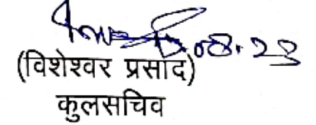 08.23
(विशेश्वर प्रसाद)
कुलसचिव